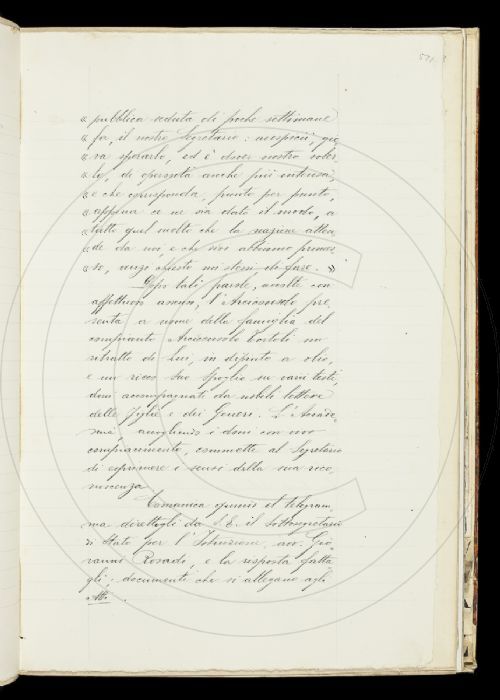 « pubblica seduta di poche settimane
« fa, il nostro Segretario: auspicii, gio
« va sperarlo, ed è dover nostro voler
« lo, di operosità anche più intensa;
« e che corrisponda, punto per punto,
« appena ce ne sia dato il modo, a
« tutto quel molto che la nazione atten
« de da noi, e che noi abbiamo promes
« so, anzi chiesto noi stessi di fare. »
Dopo tali parole, accolte con
affettuoso assenso, l'Arciconsolo pre
senta a nome della famiglia del
compianto Arciconsolo Tortoli un
ritratto di Lui, in dipinto a olio,
e un ricco suo spoglio su varii testi,
doni accompagnati da nobili lettere
delle Figlie e dei Generi. L'Accade
mia accogliendo i doni con vivo
compiacimento, commette al Segretario
di esprimere i sensi della sua rico
noscenza.
Comunica quindi il telegram
ma direttogli da S. E. il Sottosegretario
di Stato per l'Istruzione, avv. Gio
vanni Rosadi, e la risposta fatta
gli; documenti che si allegano agli
atti.